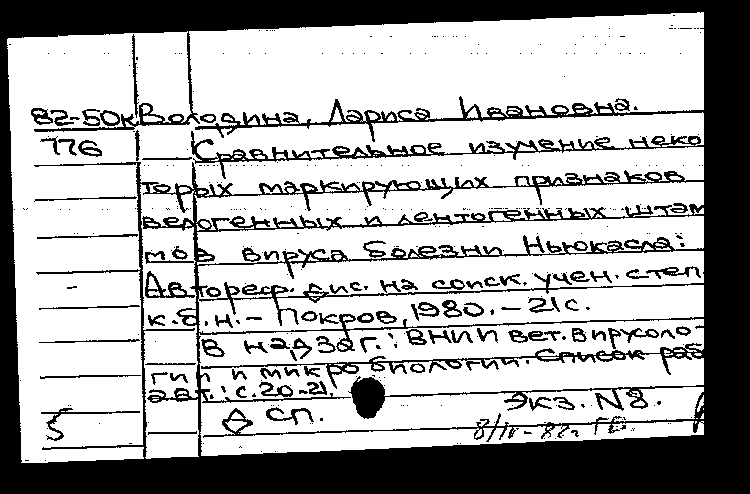 82-50к Володина, Лариса Ивановна.
776 Сравнительное изучение неко
торых маркирующих признаков
велогенных и лентогенных штам
мов вируса болезни Ньюкасла:
Автореф. дис. на соиск. учен. степ.
к.б.н. - Покров, 1980. - 21 с.
В надзаг.: ВНИИ вет. вирусоло-
гии и микробиологии. Список раб
авт.: с. 20-21.
5 Д сп. Экз. N8.
8/IV-82г